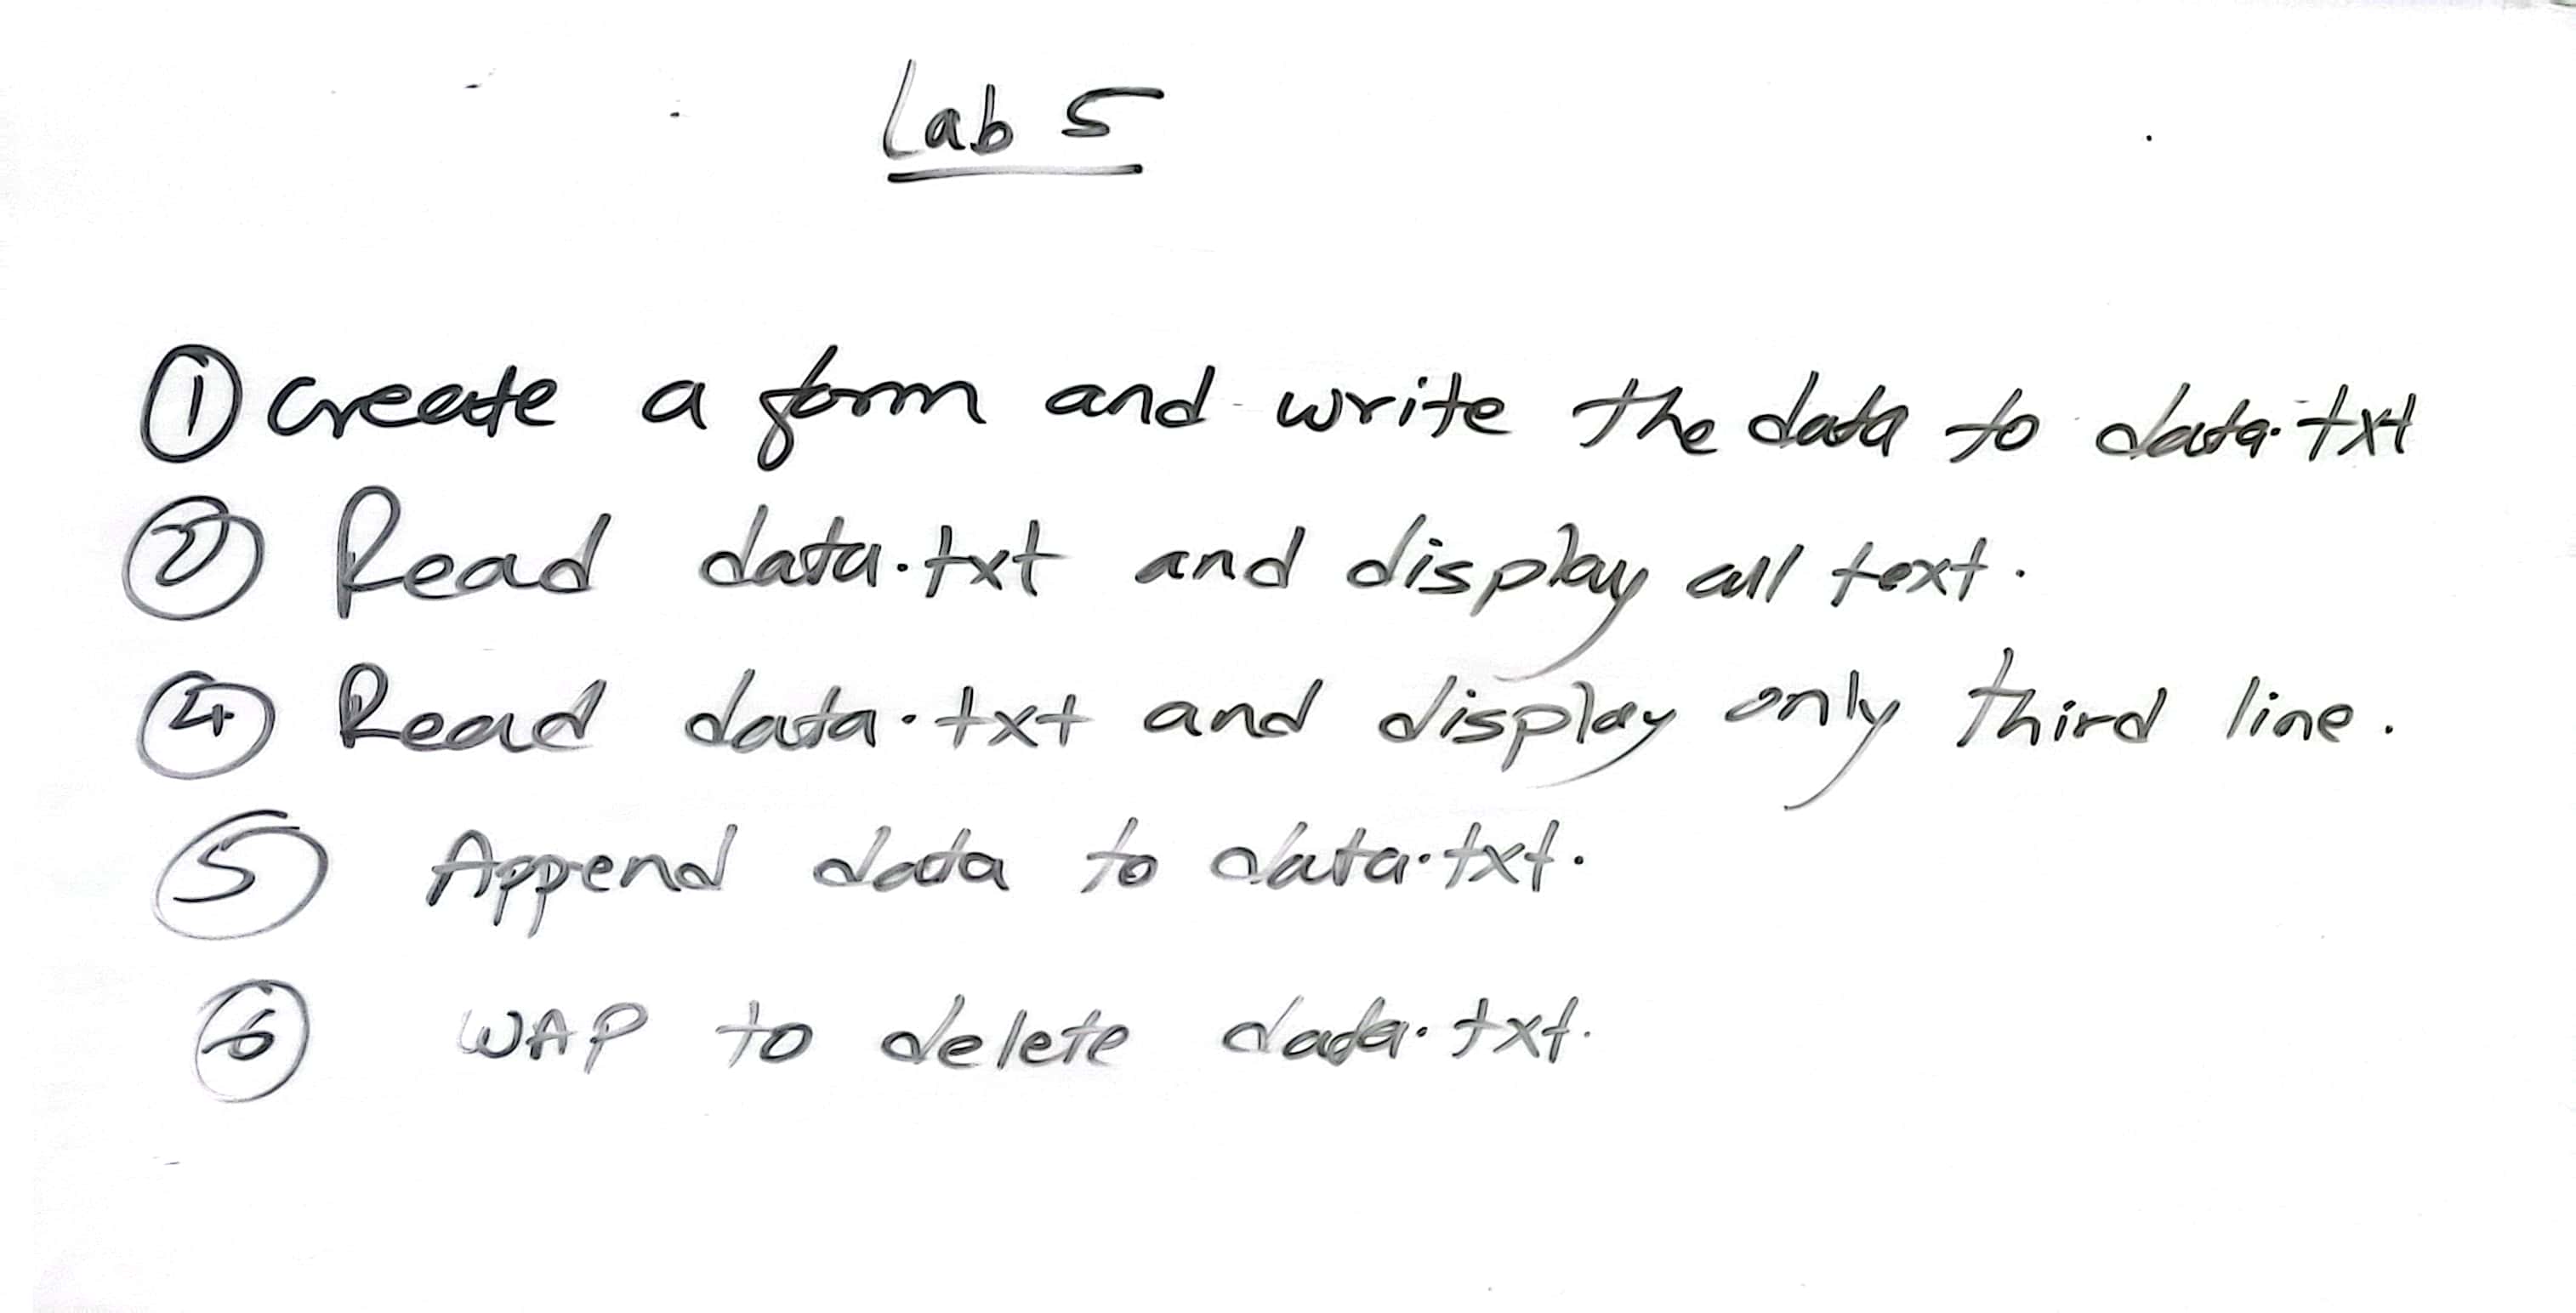 Lab 5
① create a form and write the data to data.txt
② Read data.txt and display all text.
④ Read data.txt and display only third line.
⑤ Append data to data.txt.
⑥ WAP to delete data.txt.